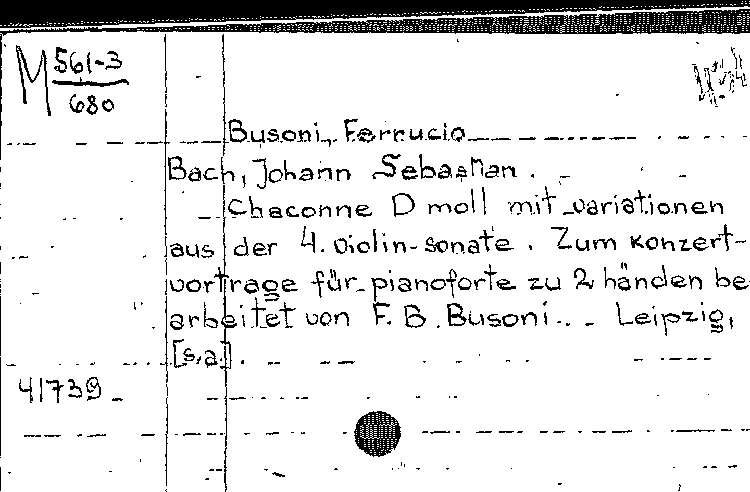 M 561-3
680
Busoni, Ferrucio
Bach, Johann Sebastian.
Chaconne D moll mit variationen
aus der 4. violin-sonate. Zum konzert-
vortrage für pianoforte zu 2 händen be
arbeitet von F. B. Busoni. - Leipzig,
[s.a.].
41739